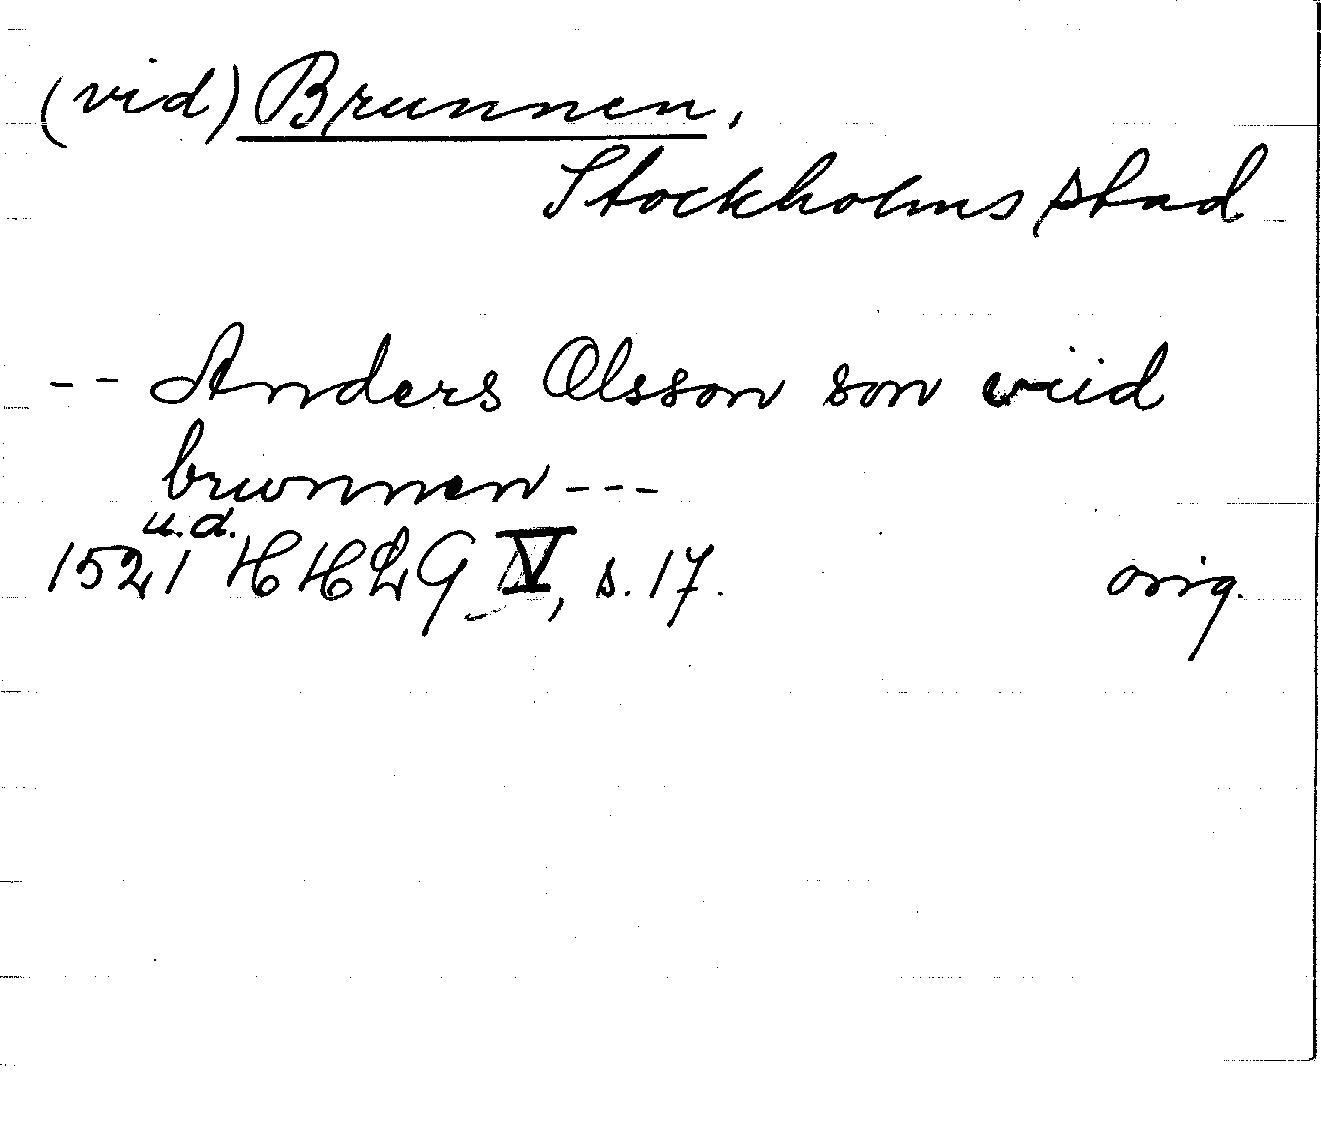 (vid) Brunnen,
Stockholms stad
-- Anders Olsson son wiid
brwnnen ---
u.d.
1521 HHLG IV, s. 17. orig.